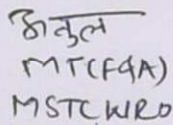 अतुल
MT(F&A)
MSTC WRO